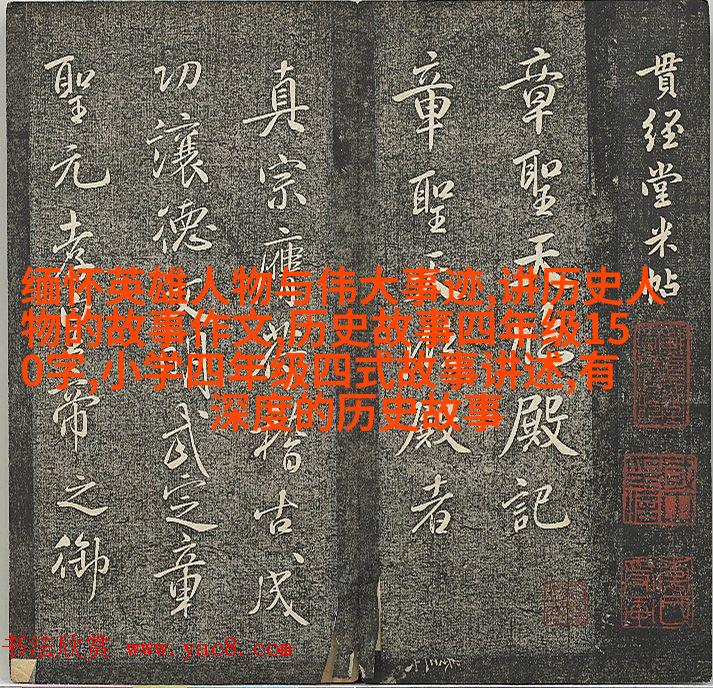 貫經堂米帖
章聖天臨殿記
章聖天臨殿者
真宗膺符稽古成
功讓德文明武定章
聖元孝皇帝之御
缅怀英雄人物与伟大事迹,讲历史人
物的故事作文,历史故事四年级15
0字,小学四年级四式故事讲述,有
深度的历史故事
书法欣赏 www.yac8.com